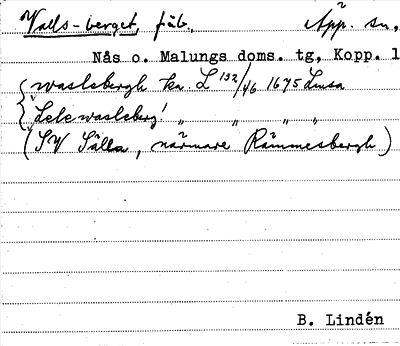 Valls-berget, fäb., Äpp. sn,
Nås o. Malungs doms. tg, Kopp. l
waslsbergh ka. L 132/46 1675 Lusa
"Lele waslsberg" " " " "
(SV Sälla, närmare Rämmesbergh)
B. Lindén